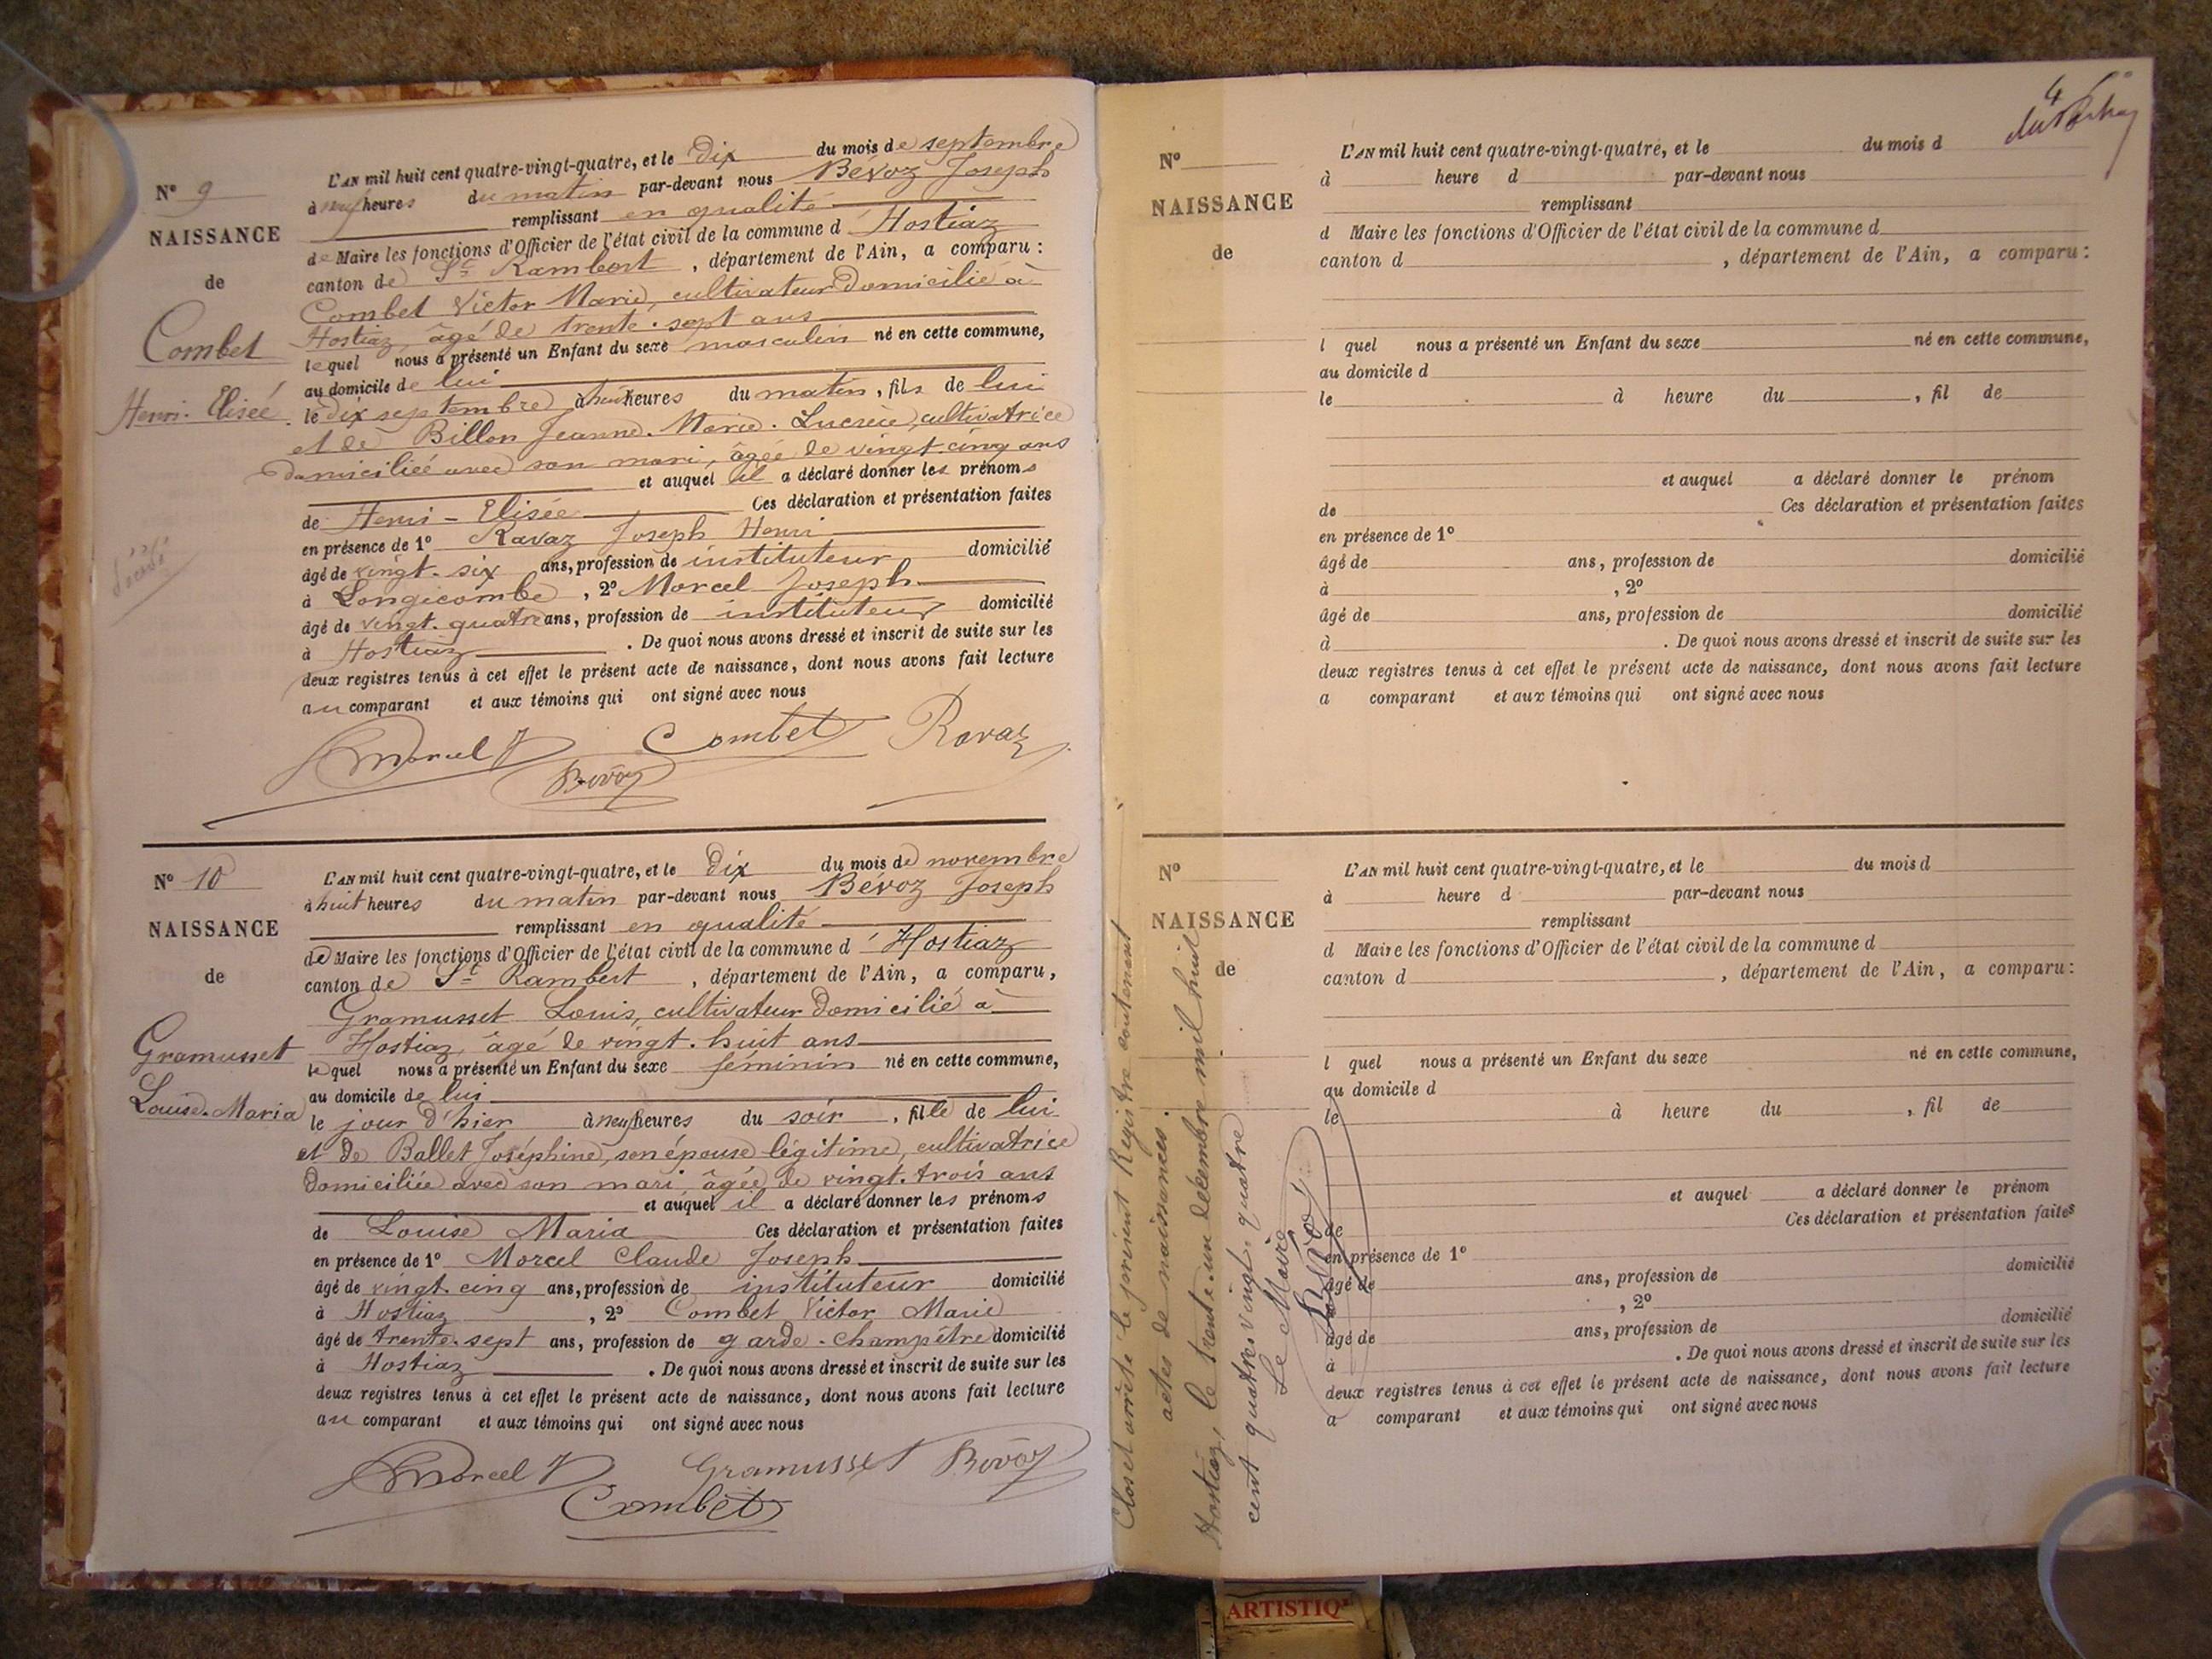 N° 9
NAISSANCE
de
Combet
Henri-Elisée
L'AN mil huit cent quatre-vingt-quatre, et le dix du mois de septembre
à neuf heures du matin par-devant nous Bévoz Joseph
remplissant en qualité
de Maire les fonctions d'Officier de l'état civil de la commune d'Hostiaz
canton de St Rambert, département de l'Ain, a comparu :
Combet Victor Marie, cultivateur domicilié à
Hostiaz, âgé de trente-sept ans
lequel nous a présenté un Enfant du sexe masculin né en cette commune,
au domicile de lui
le dix septembre à huit heures du matin, fils de lui
et de Billon Jeanne-Marie-Lucrèce, cultivatrice
domiciliée avec son mari, âgée de vingt-cinq ans
et auquel il a déclaré donner les prénoms
de Henri-Elisée Ces déclaration et présentation faites
en présence de 1° Ravaz Joseph Henri
âgé de vingt-six ans, profession de instituteur domicilié
à Longecombe, 2° Morcel Joseph
âgé de vingt-quatre ans, profession de instituteur domicilié
à Hostiaz. De quoi nous avons dressé et inscrit de suite sur les
deux registres tenus à cet effet le présent acte de naissance, dont nous avons fait lecture
au comparant et aux témoins qui ont signé avec nous
Morcel J Combet Ravaz
Bévoz
N° 10
NAISSANCE
de
Gramusset
Louise-Maria
L'AN mil huit cent quatre-vingt-quatre, et le dix du mois de novembre
à huit heures du matin par-devant nous Bévoz Joseph
remplissant en qualité
de Maire les fonctions d'Officier de l'état civil de la commune d'Hostiaz
canton de St Rambert, département de l'Ain, a comparu,
Gramusset Louis, cultivateur domicilié à
Hostiaz, âgé de vingt-huit ans
lequel nous a présenté un Enfant du sexe féminin né en cette commune,
au domicile de lui
le jour d'hier à neuf heures du soir, fille de lui
et de Ballet Joséphine, son épouse légitime, cultivatrice
domiciliée avec son mari, âgée de vingt-trois ans
et auquel il a déclaré donner les prénoms
de Louise Maria Ces déclaration et présentation faites
en présence de 1° Morcel Claude Joseph
âgé de vingt-cinq ans, profession de instituteur domicilié
à Hostiaz, 2° Combet Victor Marie
âgé de trente-sept ans, profession de garde-champêtre domicilié
à Hostiaz. De quoi nous avons dressé et inscrit de suite sur les
deux registres tenus à cet effet le présent acte de naissance, dont nous avons fait lecture
au comparant et aux témoins qui ont signé avec nous
Morcel J Gramusset Bévoz
Combet
4
N°
NAISSANCE
de
L'AN mil huit cent quatre-vingt-quatre, et le du mois d
à heure d par-devant nous
remplissant
d Maire les fonctions d'Officier de l'état civil de la commune d
canton d , département de l'Ain, a comparu :
l quel nous a présenté un Enfant du sexe né en cette commune,
au domicile d
le à heure du , fil de
et auquel a déclaré donner le prénom
de Ces déclaration et présentation faites
en présence de 1°
âgé de ans, profession de domicilié
à , 2°
âgé de ans, profession de domicilié
à . De quoi nous avons dressé et inscrit de suite sur les
deux registres tenus à cet effet le présent acte de naissance, dont nous avons fait lecture
a comparant et aux témoins qui ont signé avec nous
N°
NAISSANCE
de
L'AN mil huit cent quatre-vingt-quatre, et le du mois d
à heure d par-devant nous
remplissant
d Maire les fonctions d'Officier de l'état civil de la commune d
canton d , département de l'Ain, a comparu :
l quel nous a présenté un Enfant du sexe né en cette commune,
au domicile d
le à heure du , fil de
et auquel a déclaré donner le prénom
de Ces déclaration et présentation faites
en présence de 1°
âgé de ans, profession de domicilié
, 2°
âgé de ans, profession de domicilié
à . De quoi nous avons dressé et inscrit de suite sur les
deux registres tenus à cet effet le présent acte de naissance, dont nous avons fait lecture
a comparant et aux témoins qui ont signé avec nous
Clos et arrêté le présent Registre contenant
actes de naissances.
Hostiaz, le trente-un décembre mil huit
cent quatre-vingt-quatre
Le Maire
Bévoz
ARTISTIQ